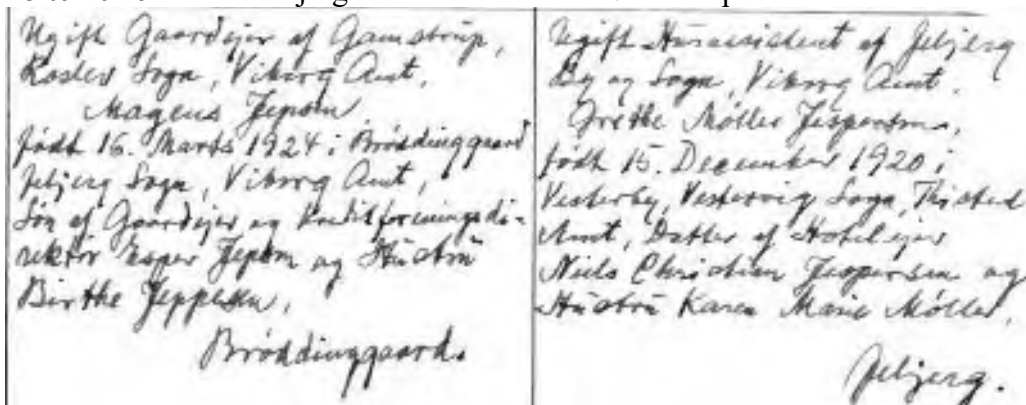 Ugift Gaardejer af Gamstrup,
Roslev Sogn, Viborg Amt,
Magnus Jepsen
født 16. Marts 1924 i Brøddinggaard
Jebjerg Sogn, Viborg Amt,
Søn af Gaardejer og Kreditforeningsdi-
rektør Jesper Jepsen og Hustru
Birthe Jeppesen,
Brøddinggaard.
Ugift Husassistent af Jebjerg
By og Sogn, Viborg Amt,
Grethe Møller Jespersen,
født 15. December 1920 i
Vesterby, Vestervig Sogn, Thisted
Amt, Datter af Hotelejer
Niels Christian Jespersen og
Hustru Karen Marie Møller,
Jebjerg.